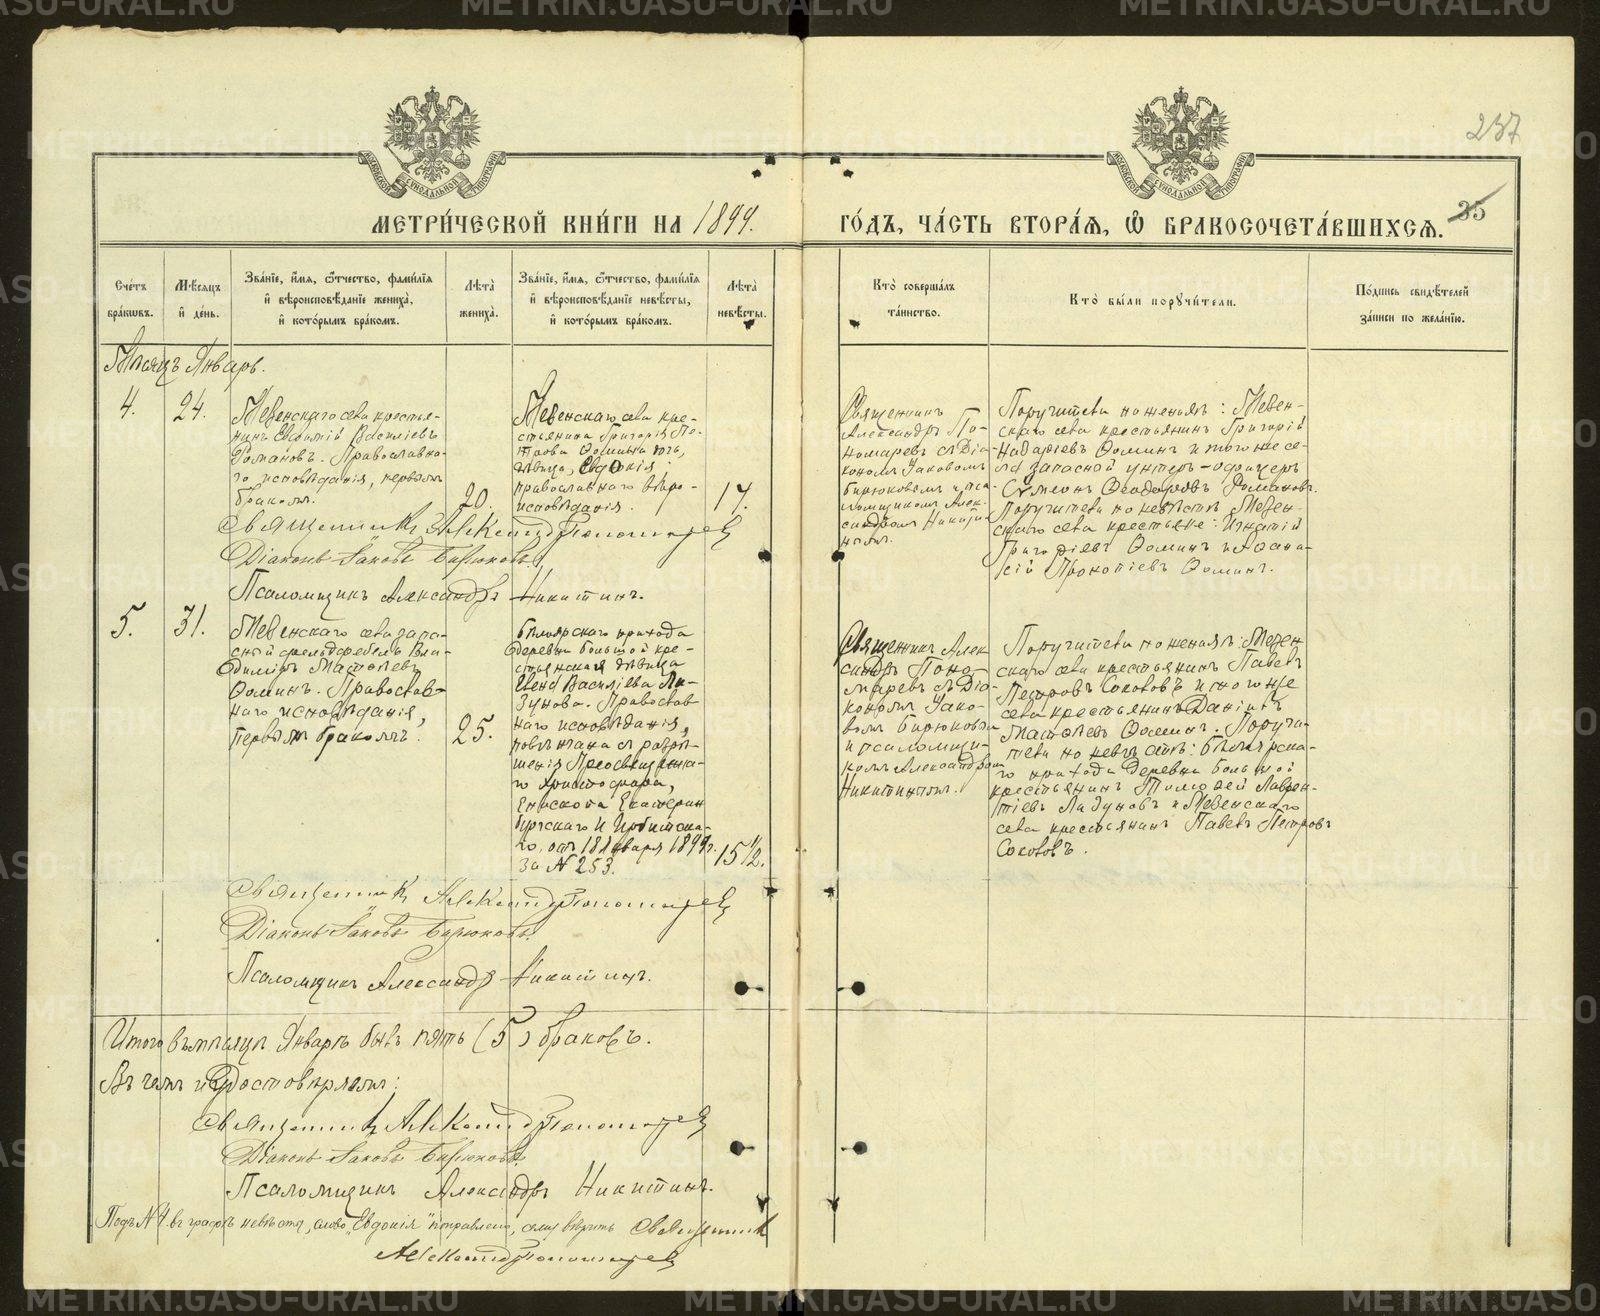 237
МОСКОВСКОЙ СѴНОДАЛЬНОЙ ТИПОГРАФІИ
МОСКОВСКОЙ СѴНОДАЛЬНОЙ ТИПОГРАФІИ
МЕТРИ́ЧЕСКОЙ КНИ́ГИ НА 1899.
ГО́ДЪ, ЧА́СТЬ ВТОРА́Я, Ѿ БРАКОСОЧЕТА́ВШИХСЯ. 35
Сче́тъ
бра́кѡвъ.
Мѣ́сяцъ
й де́нь.
Зва́нїе, и́мя, ѻ́тчество, фами́лїя
й вѣроисповѣ́данїе жениха̀,
й кото́рымъ бра́комъ.
Лѣ́та
жениха̀.
Зва́нїе, и́мя, ѻ́тчество, фами́лїя
й вѣроисповѣ́данїе невѣ́сты,
й кото́рымъ бра́комъ.
Лѣ́та
невѣ́сты.
Кто̀ соверша́лъ
та́инство.
Кто̀ бы́ли порꙋчи́тели.
По́дпись свидѣ́телей
за́писи по жела́нїю.
Мѣсяцъ Январь.
4.
24.
Мезенскаго села крестья-
нинъ Евѳимій Василіевъ
Романовъ. Православна-
го исповѣданія, первымъ
бракомъ.
20.
Мезенскаго села кре-
стьянина Григорія Пе-
трова Ѳомина дочь,
дѣвица, Евдокія
православнаго вѣро-
исповѣданія.
17.
Священникъ
Александръ По-
номаревъ съ Діа-
кономъ Іаковомъ
Бирюковымъ и пса-
ломщикомъ Алек-
сандромъ Никити-
нымъ.
Поручители по женихѣ: Мезен-
скаго села крестьянинъ Григорій
Назаріевъ Ѳоминъ и того же се-
ла запасной унтеръ-офицеръ
Сѵмеонъ Ѳеодоровъ Романовъ.
Поручители по невѣстѣ Мезен-
скаго села крестьяне: Игнатій
Григоріевъ Ѳоминъ и Аѳана-
сій Прокопіевъ Ѳоминъ.
Священникъ Александръ Пономаревъ
Діаконъ Іаковъ Бирюковъ.
Псаломщикъ Александръ Никитинъ.
5.
31.
Мезенскаго села запа-
сный фельдфебель Вла-
димиръ Матѳіевъ
Ѳоминъ. Православ-
наго исповѣданія,
первымъ бракомъ.
25.
Бѣлоярскаго прихода
деревни Большой кре-
стьянская дѣвица
Елена Василіева Ла-
зунова. Православ
наго исповѣданія,
повѣнчана съ разрѣ-
шенія Преосвященна-
го Христофора,
Епископа Екатерин
бургскаго и Ирбитска-
го, отъ 18 Января 1899 г.
за № 253.
15 1/2.
Священникъ Алек
сандръ Поно-
маревъ съ Діа-
кономъ Іако-
вомъ Бирюковы
и псаломщи-
комъ Александромъ
Никитинымъ.
Поручители по женихѣ: Мезен
скаго села крестьянинъ Павелъ
Петровъ Соколовъ и того же
села крестьянинъ Даніилъ
Матѳіевъ Ѳоминъ. Поручи-
тели по невѣстѣ: Бѣлоярска-
го прихода деревни Большой
крестьянинъ Тимоѳей Лаврен-
тіевъ Лазуновъ и Мезенскаго
села крестьянинъ Павелъ Петровъ
Соколовъ.
Священникъ Александръ Пономаревъ
Діаконъ Іаковъ Бирюковъ.
Псаломщикъ Александръ Никитинъ.
Итого въ мѣсяцѣ Январѣ было пять (5) браковъ.
Въ чемъ и удостовѣряемъ:
Священникъ Александръ Пономаревъ
Діаконъ Іаковъ Бирюковъ.
Псаломщикъ Александръ Никитинъ.
Подъ № 4 въ графѣ невѣсты, слово "Евдокія" поправлено, сему вѣрить Священникъ
Александръ Пономаревъ
METRIKI.GASO-URAL.RU